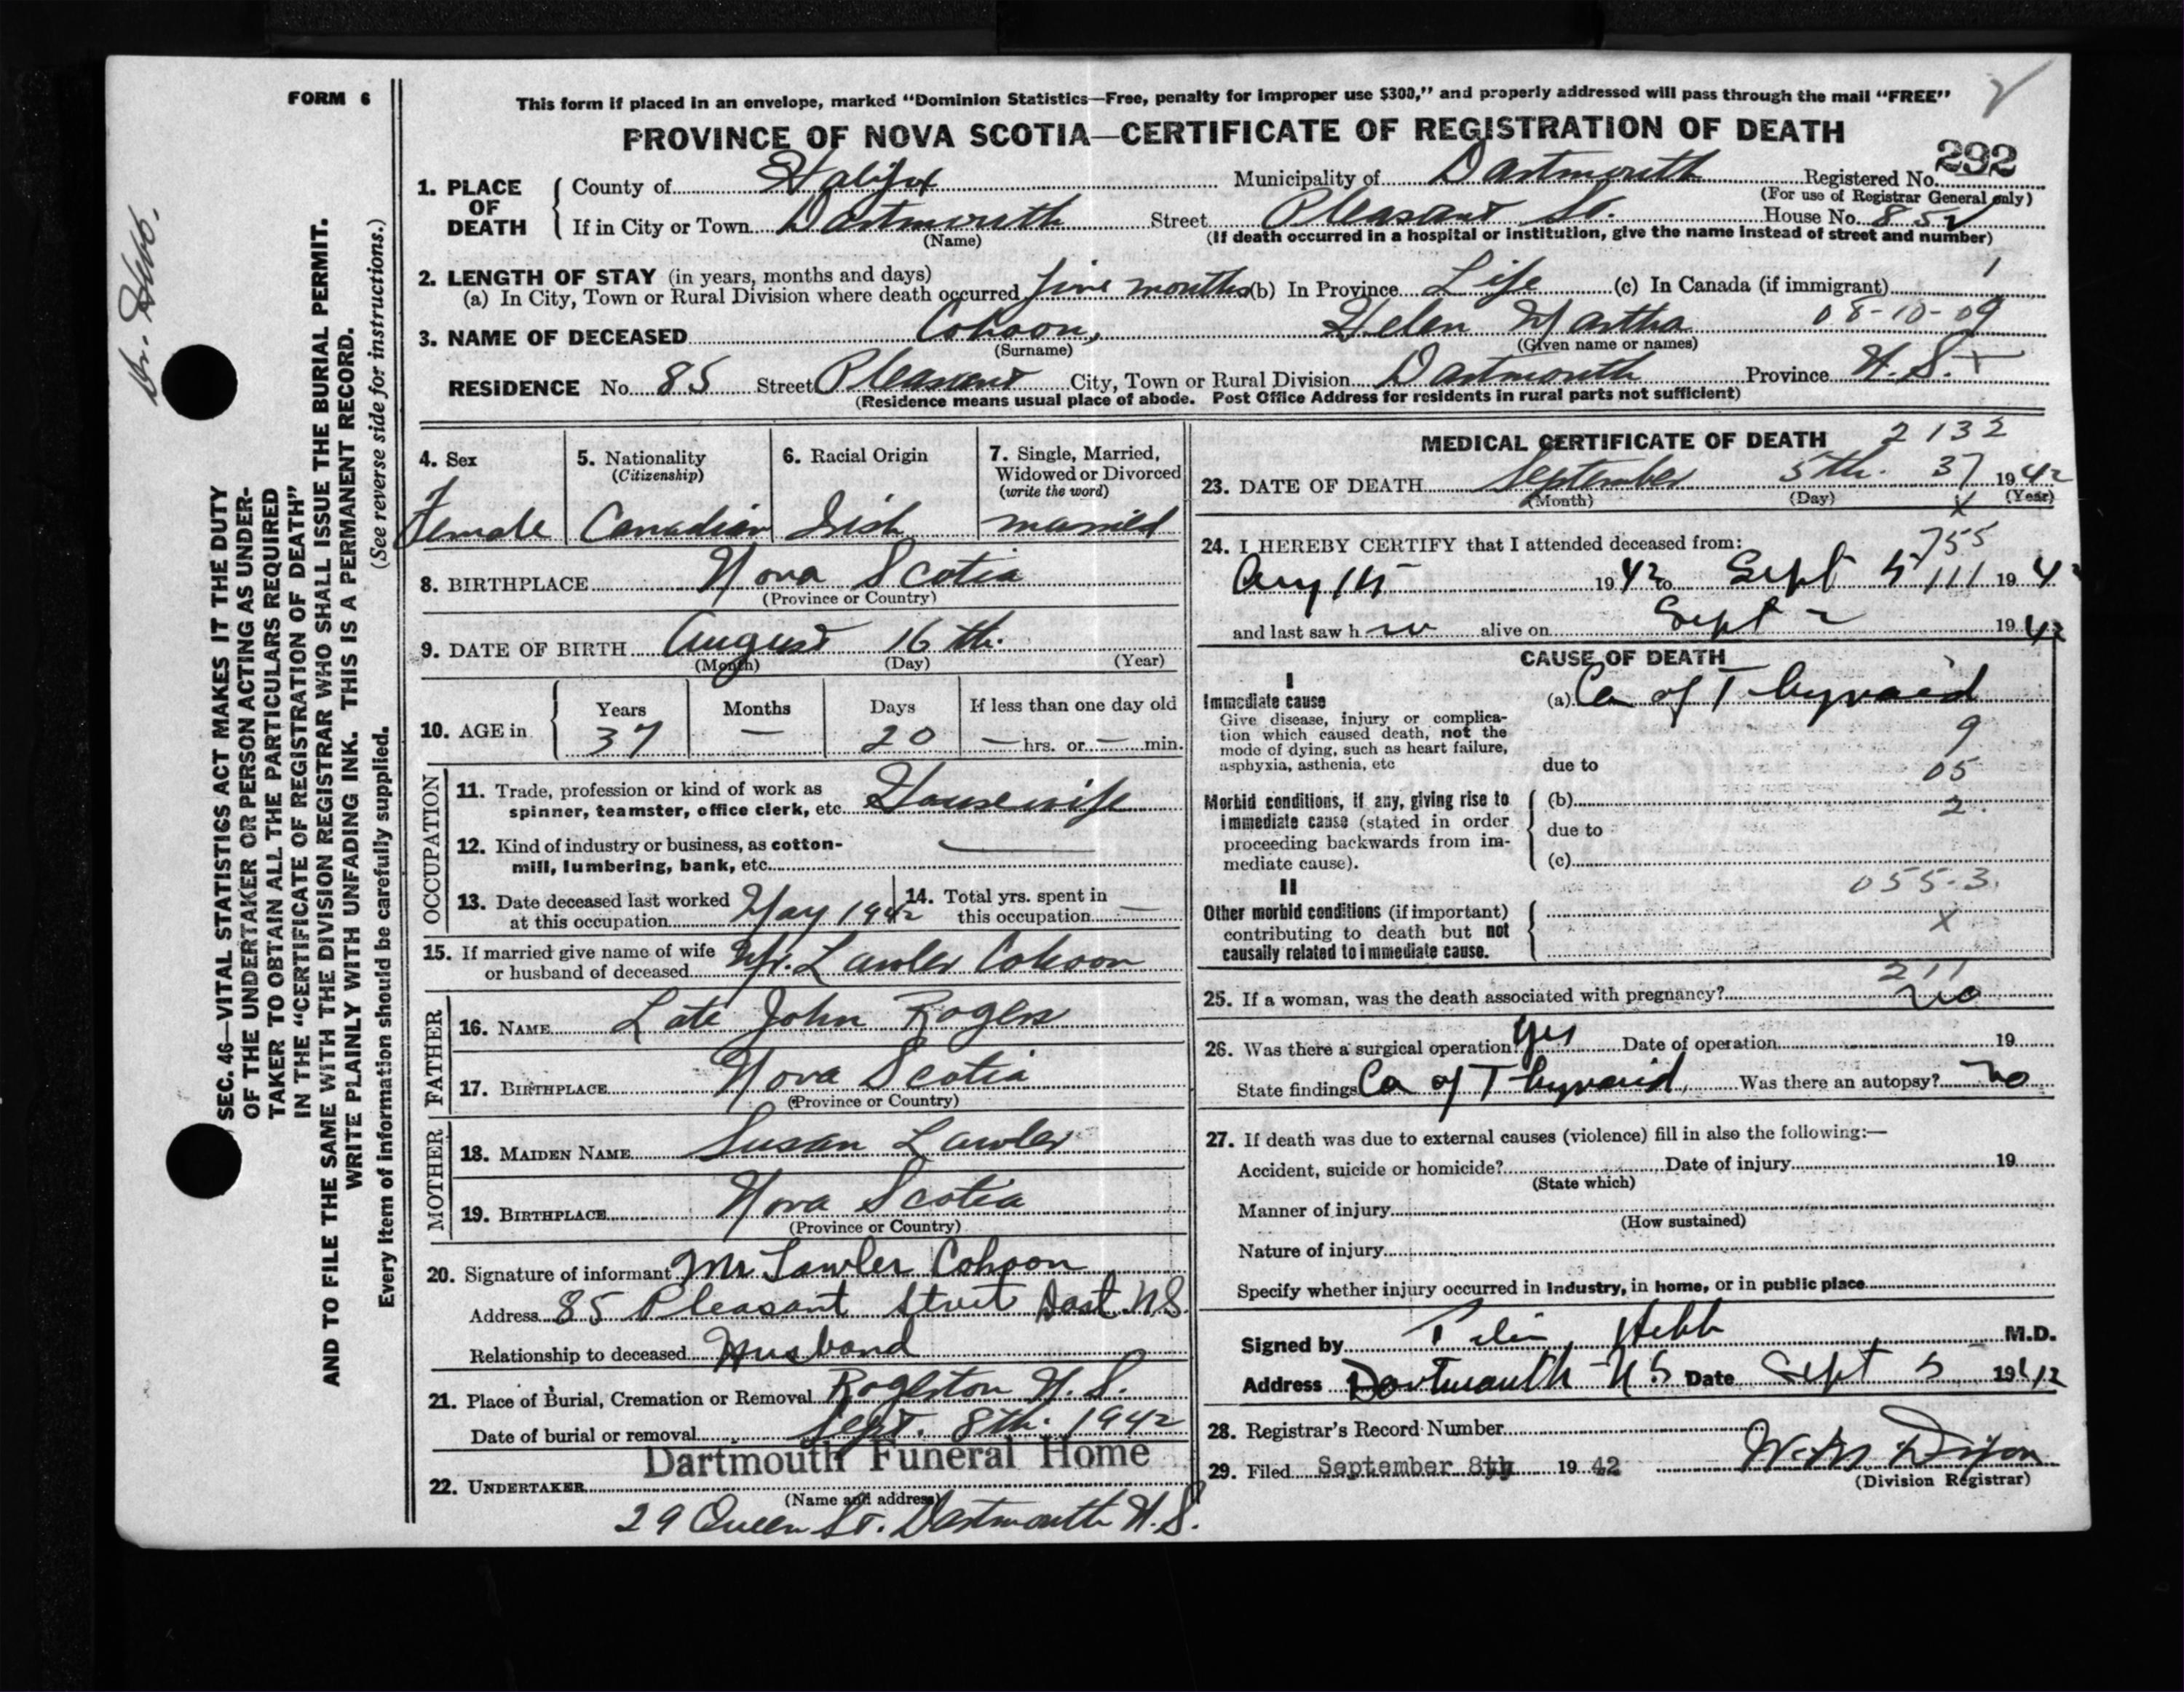 FORM 6
This form if placed in an envelope, marked "Dominion Statistics—Free, penalty for improper use $300," and properly addressed will pass through the mail "FREE"
PROVINCE OF NOVA SCOTIA—CERTIFICATE OF REGISTRATION OF DEATH
292
1. PLACE OF DEATH County of Halifax Municipality of Dartmouth Registered No.
(For use of Registrar General only)
If in City or Town Dartmouth Street Pleasant St. House No. 85
(Name) (If death occurred in a hospital or institution, give the name instead of street and number)
2. LENGTH OF STAY (in years, months and days)
(a) In City, Town or Rural Division where death occurred five months (b) In Province Life (c) In Canada (if immigrant)
3. NAME OF DECEASED Cohoon, Helen Martha 08-10-09
(Surname) (Given name or names)
RESIDENCE No. 85 Street Pleasant City, Town or Rural Division Dartmouth Province N.S.
(Residence means usual place of abode. Post Office Address for residents in rural parts not sufficient)
4. Sex 5. Nationality (Citizenship) 6. Racial Origin 7. Single, Married, Widowed or Divorced (write the word)
Female Canadian Irish married
8. BIRTHPLACE Nova Scotia
(Province or Country)
9. DATE OF BIRTH August 16th.
(Month) (Day) (Year)
10. AGE in Years Months Days If less than one day old
37 — 20 — hrs. or — min.
OCCUPATION
11. Trade, profession or kind of work as spinner, teamster, office clerk, etc. Housewife
12. Kind of industry or business, as cotton-mill, lumbering, bank, etc. —
13. Date deceased last worked at this occupation May 1942 14. Total yrs. spent in this occupation —
15. If married give name of wife or husband of deceased Mr. Lawler Cohoon
FATHER
16. NAME Late John Rogers
17. BIRTHPLACE Nova Scotia
(Province or Country)
MOTHER
18. MAIDEN NAME Susan Lawler
19. BIRTHPLACE Nova Scotia
(Province or Country)
20. Signature of informant Mr Lawler Cohoon
Address 85 Pleasant Street Dart. N.S.
Relationship to deceased Husband
21. Place of Burial, Cremation or Removal Rogerton N.S.
Date of burial or removal Sept. 8th. 1942
Dartmouth Funeral Home
22. UNDERTAKER
(Name and address)
29 Queen St. Dartmouth N.S.
MEDICAL CERTIFICATE OF DEATH 2132
23. DATE OF DEATH September 5th. 37 1942
(Month) (Day) X (Year)
24. I HEREBY CERTIFY that I attended deceased from: 755
Aug 1942 to Sept 5 111 1942
and last saw h alive on Sept 2 1942
CAUSE OF DEATH
I
Immediate cause (a) Ca of Thyroid
Give disease, injury or complication which caused death, not the mode of dying, such as heart failure, asphyxia, asthenia, etc
9
due to 05
Morbid conditions, if any, giving rise to immediate cause (stated in order proceeding backwards from immediate cause).
(b) 2.
due to
(c)
055-3.
II
Other morbid conditions (if important) contributing to death but not causally related to immediate cause.
X
211
25. If a woman, was the death associated with pregnancy? no
26. Was there a surgical operation? Yes Date of operation 19
State findings Ca of Thyroid. Was there an autopsy? no
27. If death was due to external causes (violence) fill in also the following:—
Accident, suicide or homicide? Date of injury 19
(State which)
Manner of injury
(How sustained)
Nature of injury
Specify whether injury occurred in industry, in home, or in public place
Signed by Hebb M.D.
Address Dartmouth N.S Date Sept 5 1942
28. Registrar's Record Number
29. Filed September 8th 19 42 Dixon
(Division Registrar)
Dr. Hebb.
SEC. 46—VITAL STATISTICS ACT MAKES IT THE DUTY
OF THE UNDERTAKER OR PERSON ACTING AS UNDER-
TAKER TO OBTAIN ALL THE PARTICULARS REQUIRED
IN THE "CERTIFICATE OF REGISTRATION OF DEATH"
AND TO FILE THE SAME WITH THE DIVISION REGISTRAR WHO SHALL ISSUE THE BURIAL PERMIT.
WRITE PLAINLY WITH UNFADING INK. THIS IS A PERMANENT RECORD.
(See reverse side for instructions.)
Every item of information should be carefully supplied.